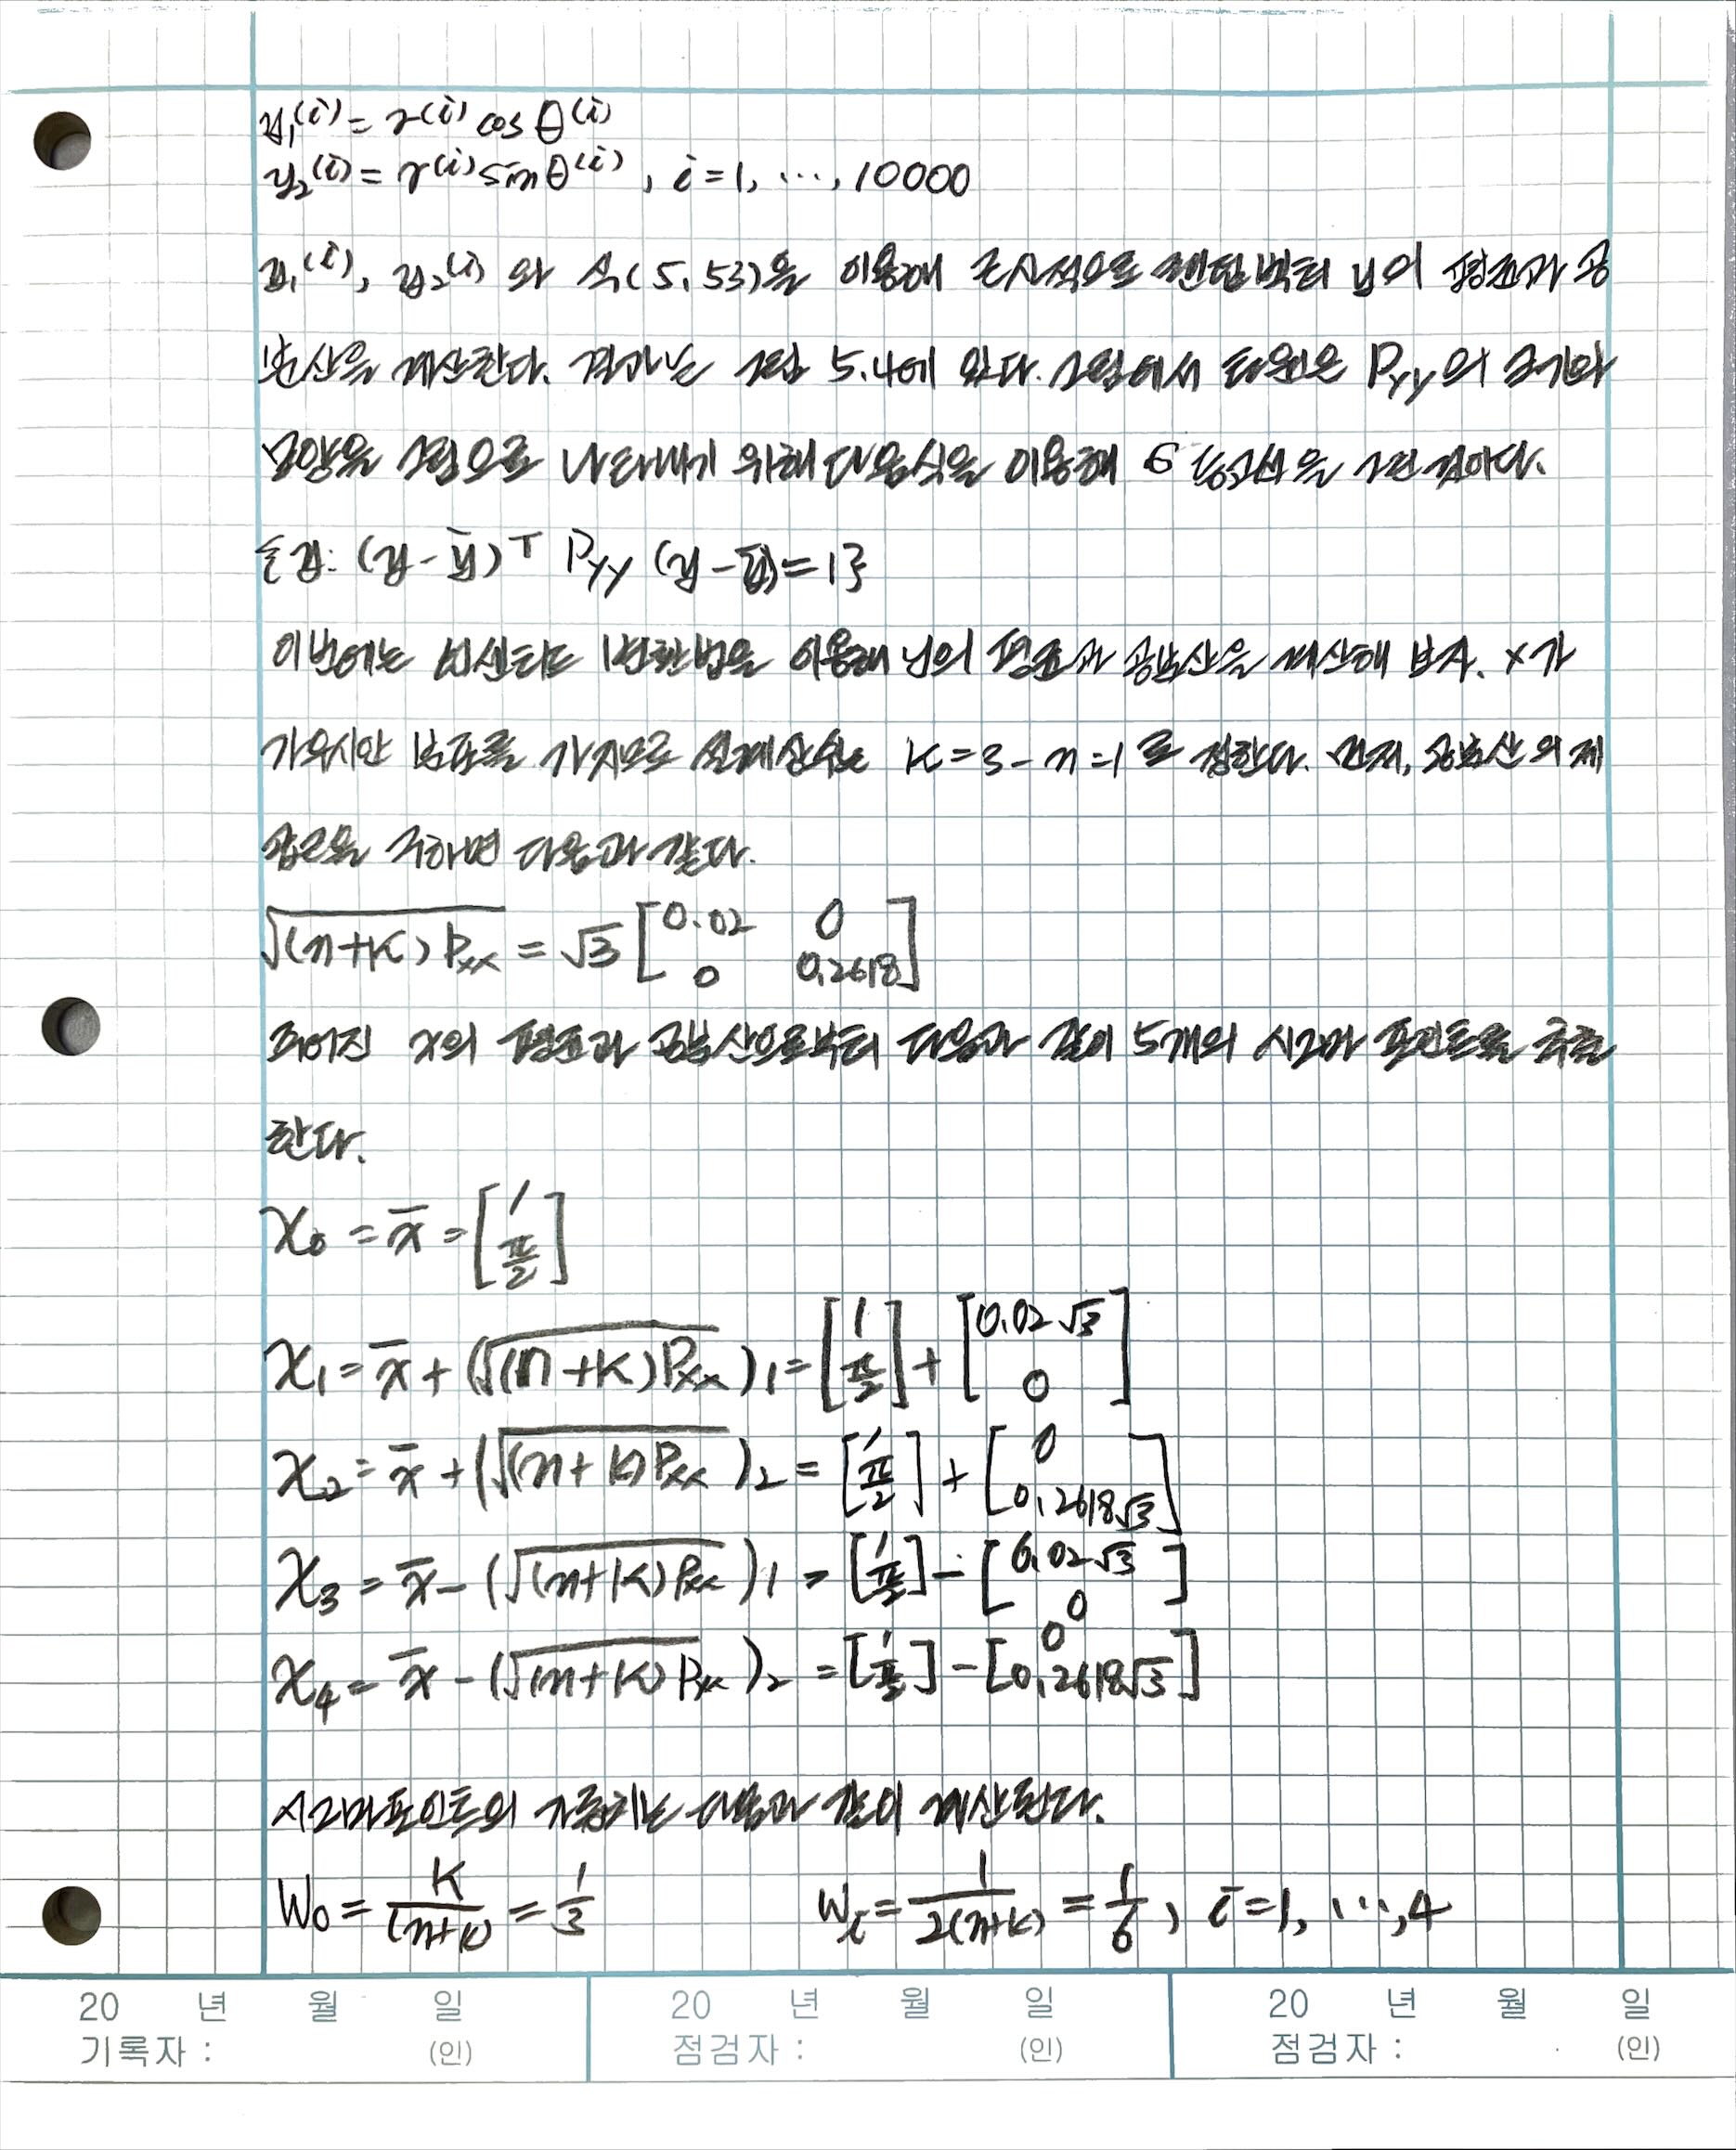 y₁⁽ⁱ⁾ = r⁽ⁱ⁾ cos θ⁽ⁱ⁾
y₂⁽ⁱ⁾ = r⁽ⁱ⁾ sin θ⁽ⁱ⁾, i=1, ..., 10000
y₁⁽ⁱ⁾, y₂⁽ⁱ⁾ 와 식(5.53)을 이용해 근사적으로 랜덤 벡터 y의 평균과 공
분산을 계산한다. 결과는 그림 5.4에 있다. 그림에서 타원은 P_yy의 크기와
모양을 그림으로 나타내기 위해 다음식을 이용해 σ 등고선을 그린 것이다.
{y: (y-ȳ)ᵀ P_yy (y-ȳ)=1}
이번에는 언센티드 변환법을 이용해 y의 평균과 공분산을 계산해 보자. x가
가우시안 분포를 가지므로 설계상수는 κ=3-n=1로 정한다. 먼저, 공분산의 제
곱근을 구하면 다음과 같다.
√((n+κ)P_xx) = √3 [0.02 0; 0 0.2618]
주어진 x의 평균과 공분산으로부터 다음과 같이 5개의 시그마 포인트를 추출
한다.
χ₀ = x̄ = [1; π/2]
χ₁ = x̄ + (√((n+κ)P_xx))₁ = [1; π/2] + [0.02√3; 0]
χ₂ = x̄ + (√((n+κ)P_xx))₂ = [1; π/2] + [0; 0.2618√3]
χ₃ = x̄ - (√((n+κ)P_xx))₁ = [1; π/2] - [0.02√3; 0]
χ₄ = x̄ - (√((n+κ)P_xx))₂ = [1; π/2] - [0; 0.2618√3]
시그마포인트의 가중치는 다음과 같이 계산된다.
W₀ = κ/(n+κ) = 1/3 Wᵢ = 1/2(n+κ) = 1/6, i=1, ..., 4
20 년 월 일 20 년 월 일 20 년 월 일
기록자 : (인) 점검자 : (인) 점검자 : (인)